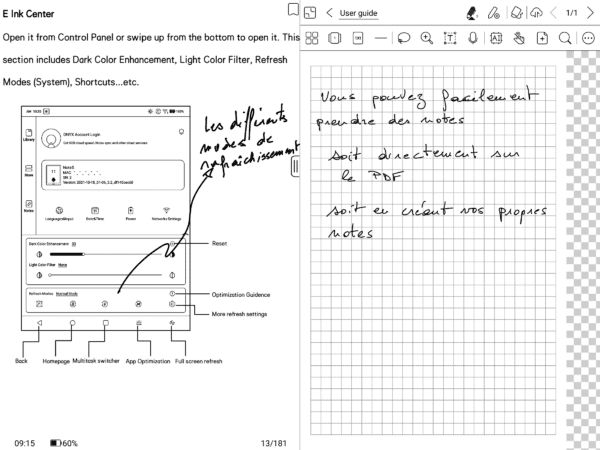 E Ink Center
Open it from Control Panel or swipe up from the bottom to open it. This
section includes Dark Color Enhancement, Light Color Filter, Refresh
Modes (System), Shortcuts...etc.
Library
ONYX Account Login
Store
Note5
MAC
Notes
Language&Input
Date&Time
Power
Networks Settings
Dark Color Enhancement
Light Color Filter None
Refresh Modes Normal Mode
Reset
Optimization Guidence
More refresh settings
Back
Homepage
Multitask switcher
App Optimization
Full screen refresh
Les différents
modes de
rafraîchissement
09:15
60%
13/181
User guide
1/1
Vous pouvez facilement
prendre des notes
soit directement sur
le PDF
soit en créant vos propres
notes